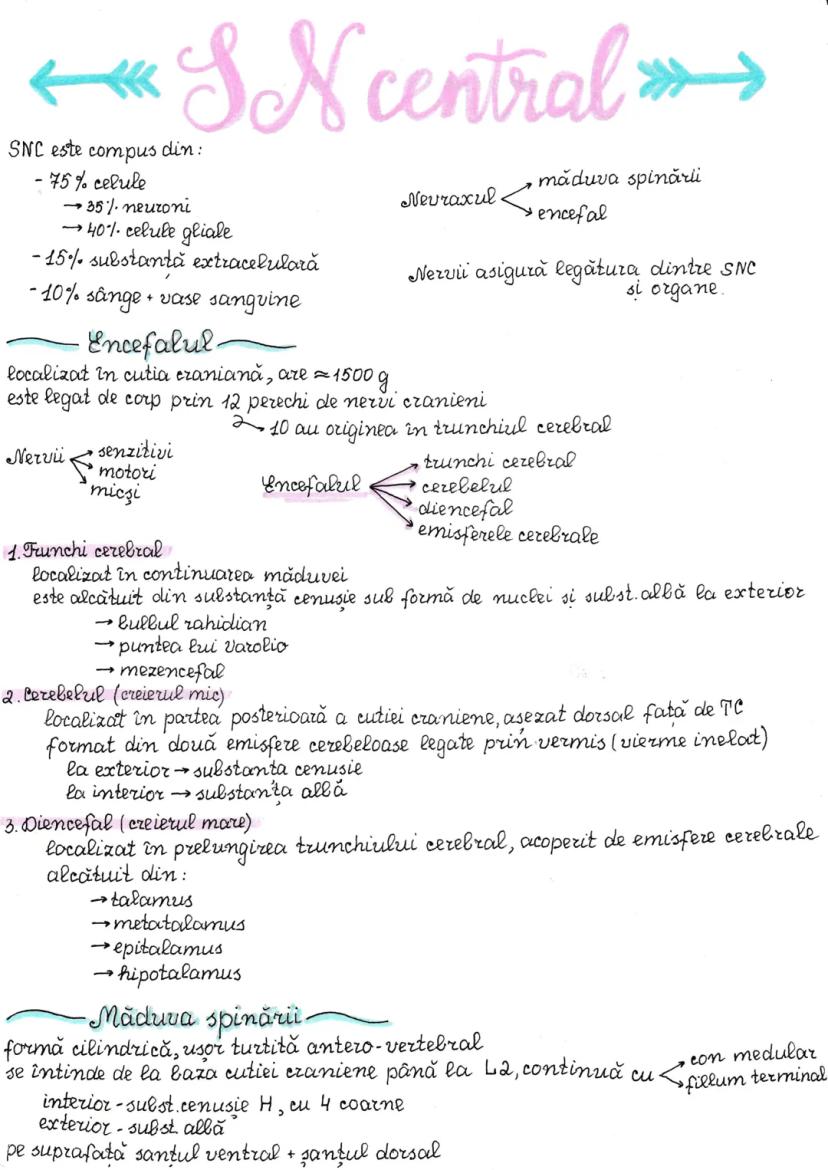 SN central
SNC este compus din:
- 75% celule
→ 35% neuroni
→ 40% celule gliale
- 15% substanță extracelulară
- 10% sânge + vase sangvine
Nevraxul
măduva spinării
encefal
Nervii asigură legătura dintre SNC
și organe.
Encefalul
localizat în cutia craniană, are ≈ 1500 g
este legat de corp prin 12 perechi de nervi cranieni
10 au originea în trunchiul cerebral
Nervii
senzitivi
motori
micși
Encefalul
trunchi cerebral
cerebelul
diencefal
emisferele cerebrale
1. Trunchi cerebral
localizat în continuarea măduvei
este alcătuit din substanță cenușie sub formă de nuclei și subst. albă la exterior
→ bulbul rahidian
→ puntea lui Varolio
→ mezencefal
2. Cerebelul (creierul mic)
localizat în partea posterioară a cutiei craniene, așezat dorsal față de TC
format din două emisfere cerebeloase legate prin vermis (vierme inelat)
la exterior → substanta cenusie
la interior → substanța albă
3. Diencefal (creierul mare)
localizat în prelungirea trunchiului cerebral, acoperit de emisfere cerebrale
alcătuit din:
→ talamus
→ metatalamus
→ epitalamus
→ hipotalamus
Măduva spinării
formă cilindrică, ușor turtită antero-vertebral
se întinde de la baza cutiei craniene până la L2, continuă cu
con medular
fillum terminal
interior - subst. cenușie H, cu 4 coarne
exterior - subst. albă
pe suprafață șanțul ventral + șanțul dorsal